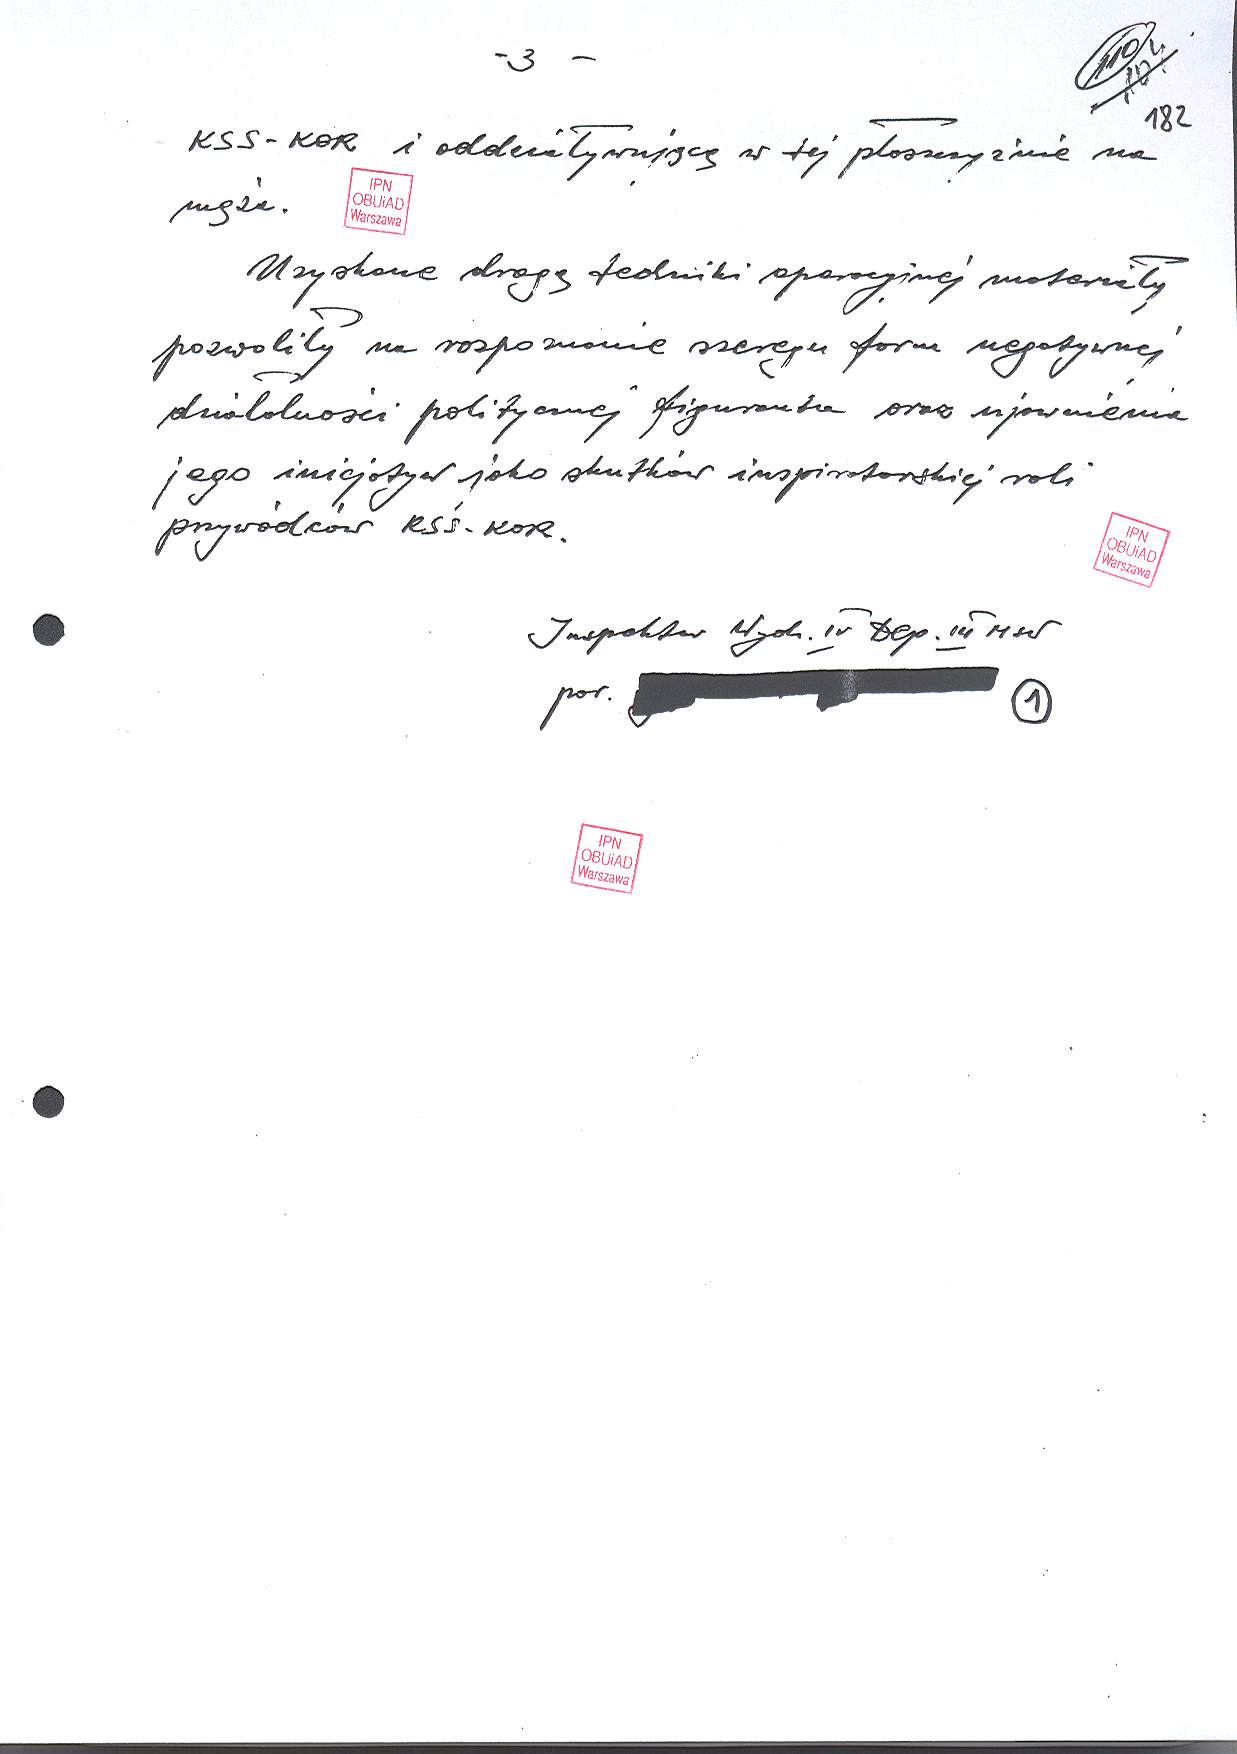 -3-
110
104
182
KSS-KOR i oddziaływującą w tej płaszczyźnie na
męża.
IPN
OBUiAD
Warszawa
Uzyskane drogą techniki operacyjnej materiały
pozwoliły na rozpoznanie szeregu form negatywnej
działalności politycznej figuranta oraz ujawnienia
jego inicjatyw jako skutków inspiratorskiej roli
przywódców KSS-KOR.
IPN
OBUiAD
Warszawa
Inspektor Wydz. IV Dep. III MSW
por.
1
IPN
OBUiAD
Warszawa